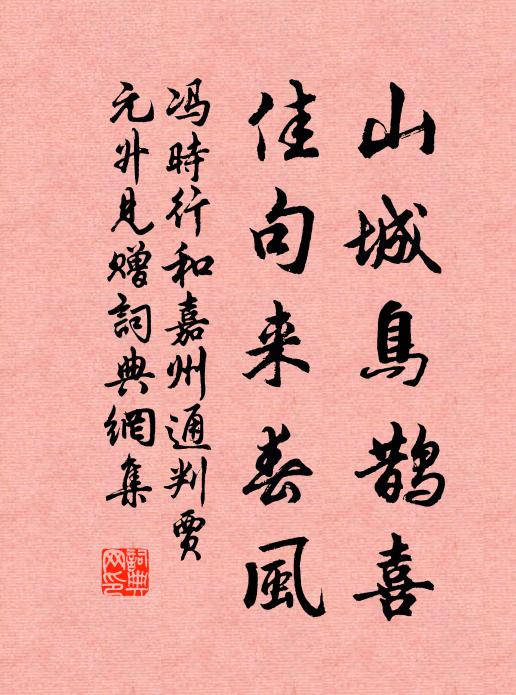 山城鳥鵲喜
佳句来春風
冯時行和嘉州通判賈
元升見赠詞典網集
詞典网印